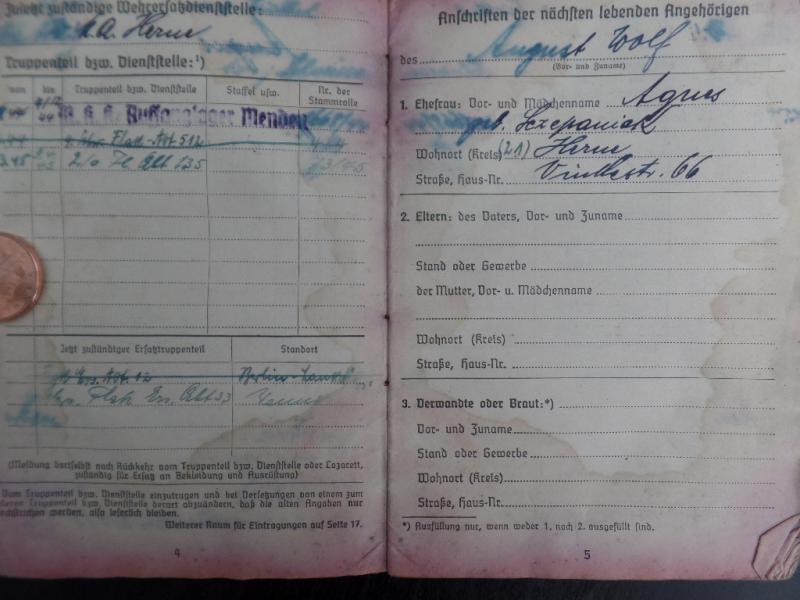 Zuletzt zuständige Wehrersatzdienststelle:
Herne
Truppenteil bzw. Dienststelle:¹)
von bis Truppenteil bzw. Dienststelle Staffel usw. Nr. der Stammrolle
Auffanglager Menden
Flak-Abt. 512
Jetzt zuständiger Ersatztruppenteil Standort
Ers. Abt. 12 Berlin-
Flak Ers. Abt 33
(Meldung dortselbst nach Rückkehr vom Truppenteil bzw. Dienststelle oder Lazarett,
zuständig für Ersatz an Bekleidung und Ausrüstung)
Vom Truppenteil bzw. Dienststelle einzutragen und bei Versetzungen von einem zum
anderen Truppenteil bzw. Dienststelle derart abzuändern, daß die alten Angaben nur
durchstrichen werden, also leserlich bleiben.
Weiterer Raum für Eintragungen auf Seite 17.
4
Anschriften der nächsten lebenden Angehörigen
des August Wolf
(Vor- und Zuname)
1. Ehefrau: Vor- und Mädchenname Agnes
geb. Szczepaniak
Wohnort (Kreis) (21) Herne
Straße, Haus-Nr. Vinckestr. 66
2. Eltern: des Vaters, Vor- und Zuname
Stand oder Gewerbe
der Mutter, Vor- u. Mädchenname
Wohnort (Kreis)
Straße, Haus-Nr.
3. Verwandte oder Braut:*)
Vor- und Zuname
Stand oder Gewerbe
Wohnort (Kreis)
Straße, Haus-Nr.
*) Ausfüllung nur, wenn weder 1. noch 2. ausgefüllt sind.
5